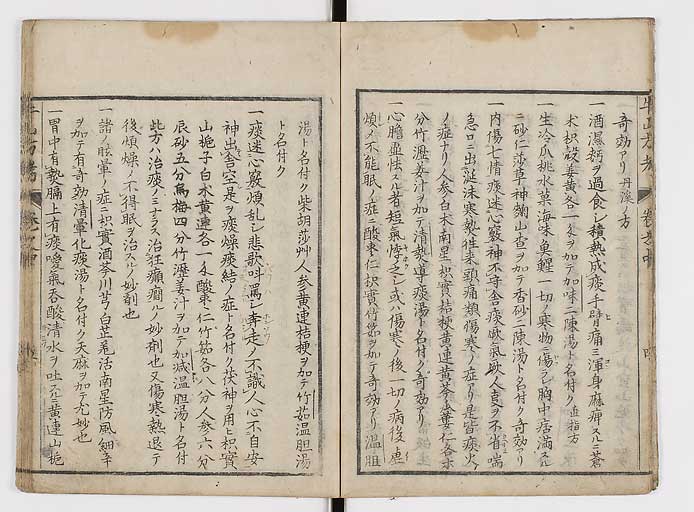 奇効アリ 丹溪ノ方
一酒濕麪ヲ過食シ積熱成痰手臂痛ミ渾身麻痺スルニ蒼
朮枳殻姜黄各一匁ヲ加テ加味二陳湯ト名付ク 直指方
一生冷瓜桃水菓海味魚鯹一切ノ寒物ニ傷ラレ胸中痞滿スルニ
二砂仁莎草神麹山査ヲ加テ香砂二陳湯ト名付ク奇効アリ
一内傷七情痰迷心竅神不守舎痰厥氣厥人言ヲ不省喘
急口ニ出涎沫寒熱往来頭痛類傷寒ノ症アリ是皆痰火
ノ症ナリ人参白朮南星枳實桔梗黄連黄芩蔞仁各
分竹瀝姜汁ヲ加テ清熱導痰湯ト名付ク奇効アリ
一心膽虚怯ル者短氣悸乏シ或ハ傷寒ノ後一切ノ病後虚
煩メ不能眠ノ症ニ酸棗仁枳實竹茹ヲ加テ奇効アリ温胆
湯ト名付ク柴胡莎艸人参黄連桔梗ヲ加テ竹茹温胆湯
ト名付ク
一痰迷心竅煩乱シ悲歌叫罵シ奔走ノ不識人心不自安
神出舎空是ヲ痰燥痰結ノ症ト名付ク茯神ヲ用ヒ枳實
山梔子白朮黄連各一匁酸棗仁竹茹各八分人参六分
辰砂五分烏梅四分竹瀝姜汁ヲ加テ加減温胆湯ト名付
此方ハ治痰ノミナラス治狂癲癇ルノ妙剤也又傷寒熱退テ
後煩燥ノ不得眠ヲ治スルノ妙剤也
一諸ノ眩暈ノ症ニ枳實酒芩川芎白芷羌活南星防風細辛
ヲ加テ有奇効清暈化痰湯ト名付ク天麻ヲ加テ尤妙也
一胃中有熱膈上有痰噯氣呑酸清水ヲ吐スルニ黄連山梔